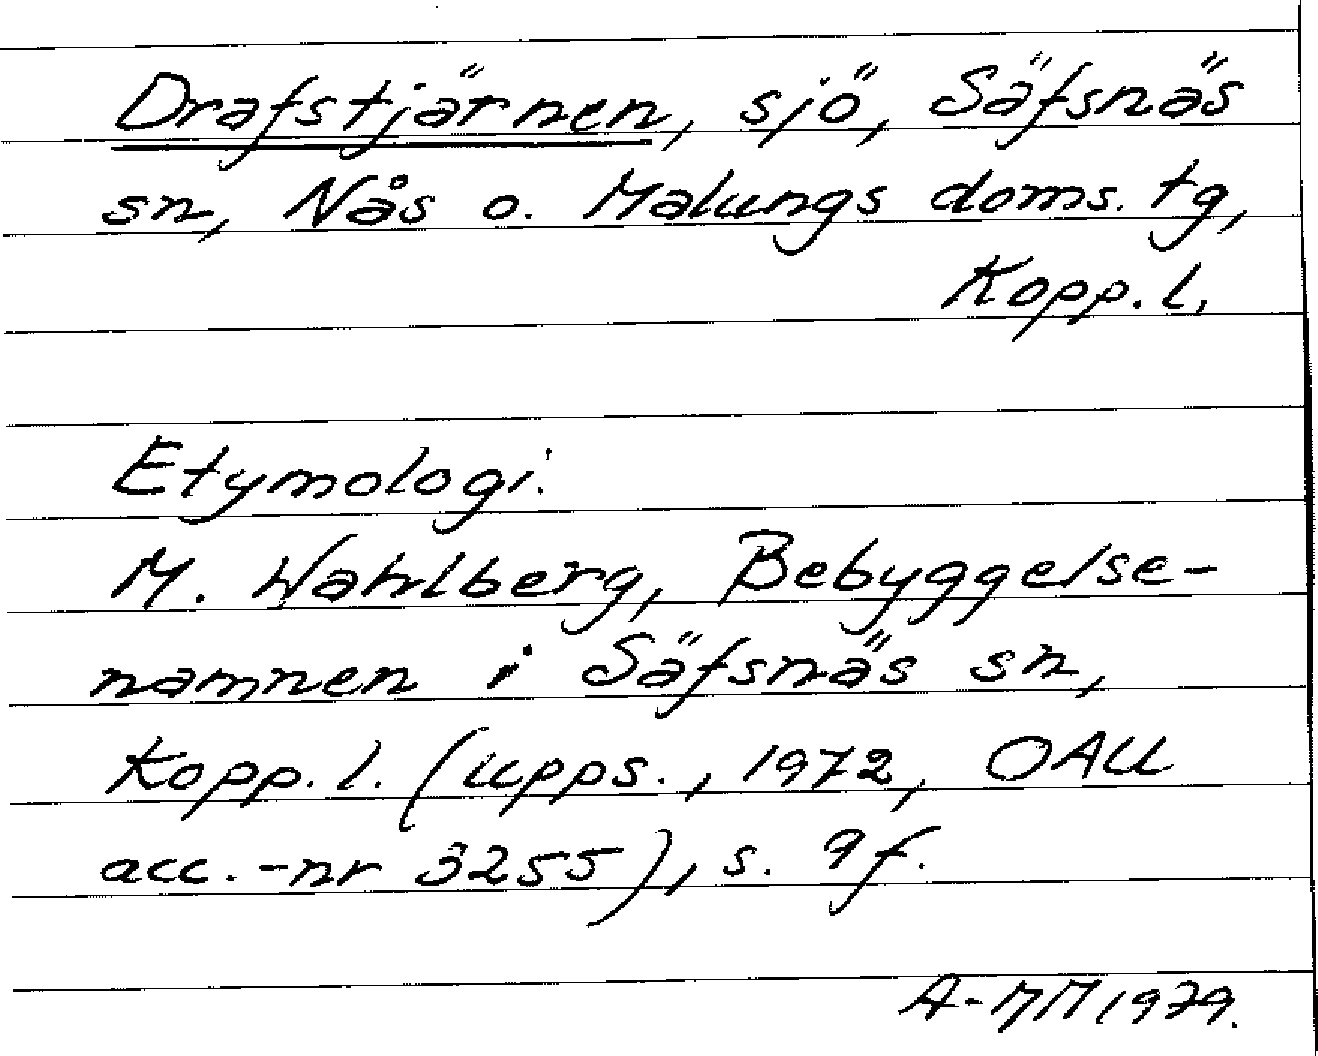 Drafstjärnen, sjö, Säfsnäs
sn, Nås o. Malungs doms. tg,
Kopp. l.
Etymologi:
M. Wahlberg, Bebyggelse-
namnen i Säfsnäs sn,
Kopp. l. (Upps., 1972, OAU
acc.-nr 3255), s. 9f.
A-MM 1979.